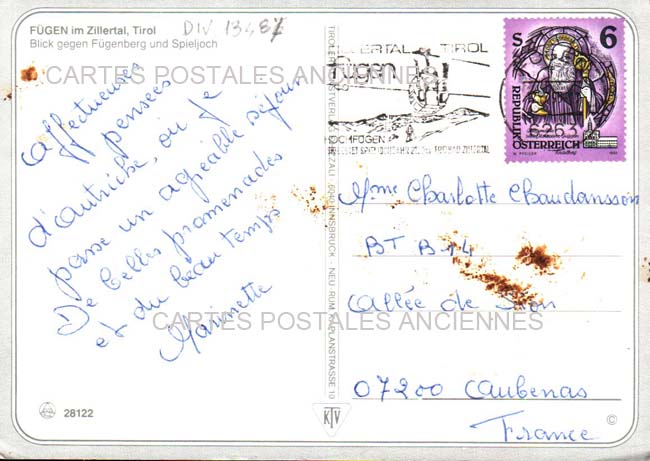 FÜGEN im Zillertal, Tirol
Blick gegen Fügenberg und Spieljoch
DIV 13487
CARTES POSTALES ANCIENNES
affectueuses
pensées
d'autriche, où je
passe un agréable séjour
De belles promenades
et du beau temps
28122
ZILLERTAL TIROL
Fügen
HOCHFÜGEN
6263
S 6
REPUBLIK
ÖSTERREICH
Mme Charlotte Chaudansson
BT B 14
allée de
07200 Aubenas
France
CARTES POSTALES ANCIENNES
KTV
©